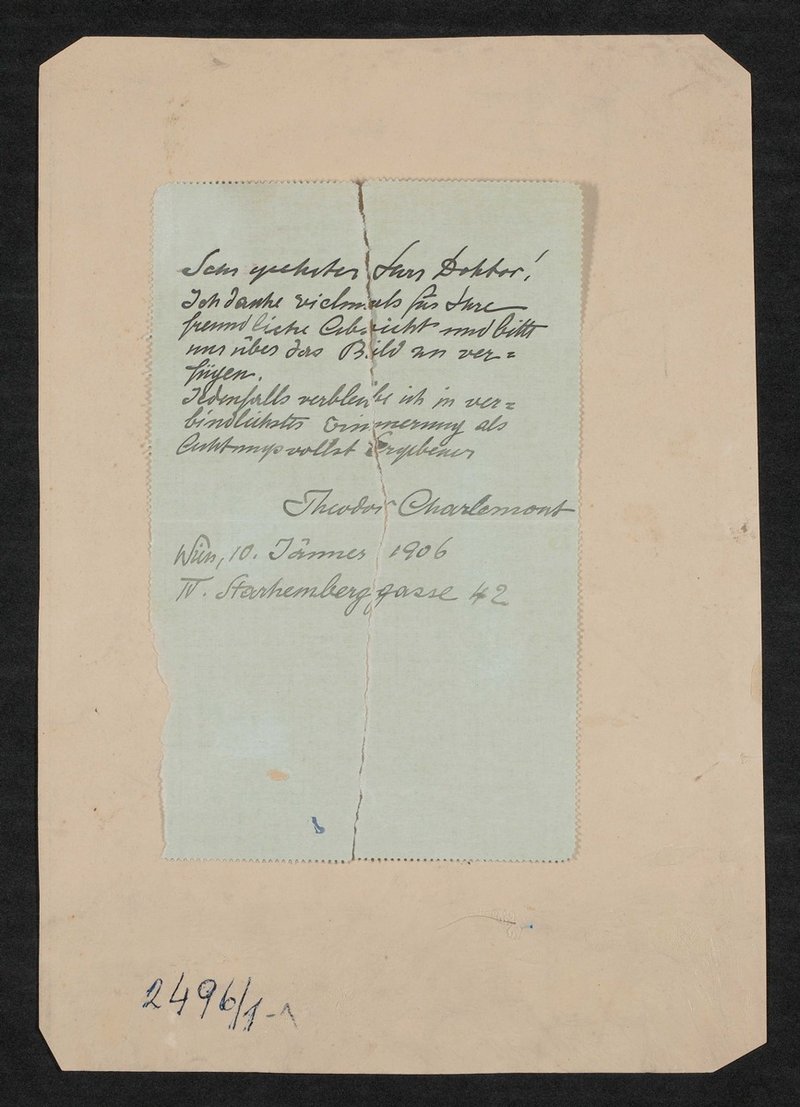 Sehr geehrter Herr Doktor!
Ich danke vielmals für Ihre
freundliche Absicht und bitte
nur über das Bild zu ver=
fügen.
Jedenfalls verbleibe ich in ver=
bindlichster Erinnerung als
Achtungsvollst Ergebener
Theodor Charlemont
Wien, 10. Jänner 1906
IV. Starhemberggasse 42
2496/1-